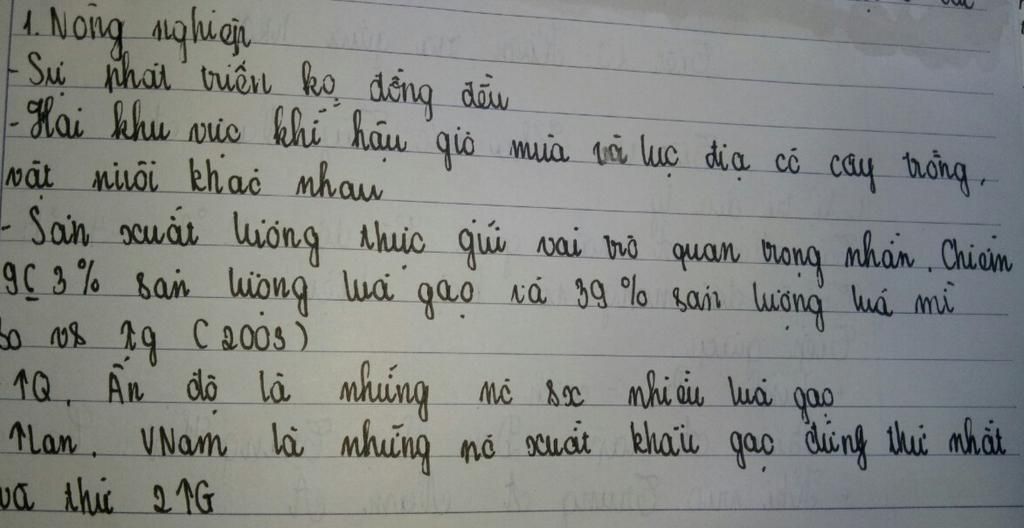 1. Nông nghiệp
- Sự phát triển ko đồng đều
- Hai khu vực khí hậu gió mùa và lục địa có cây trồng,
vật nuôi khác nhau
- Sản xuất lương thực giữ vai trò quan trọng nhấn. Chiếm
93% sản lượng lúa gạo và 39% sản lượng lúa mì
so vs tg (2003)
TQ, Ấn độ là những nc sx nhiều lúa gạo
TLan, VNam là những nc xuất khẩu gạo đứng thứ nhất
và thứ 2 TG